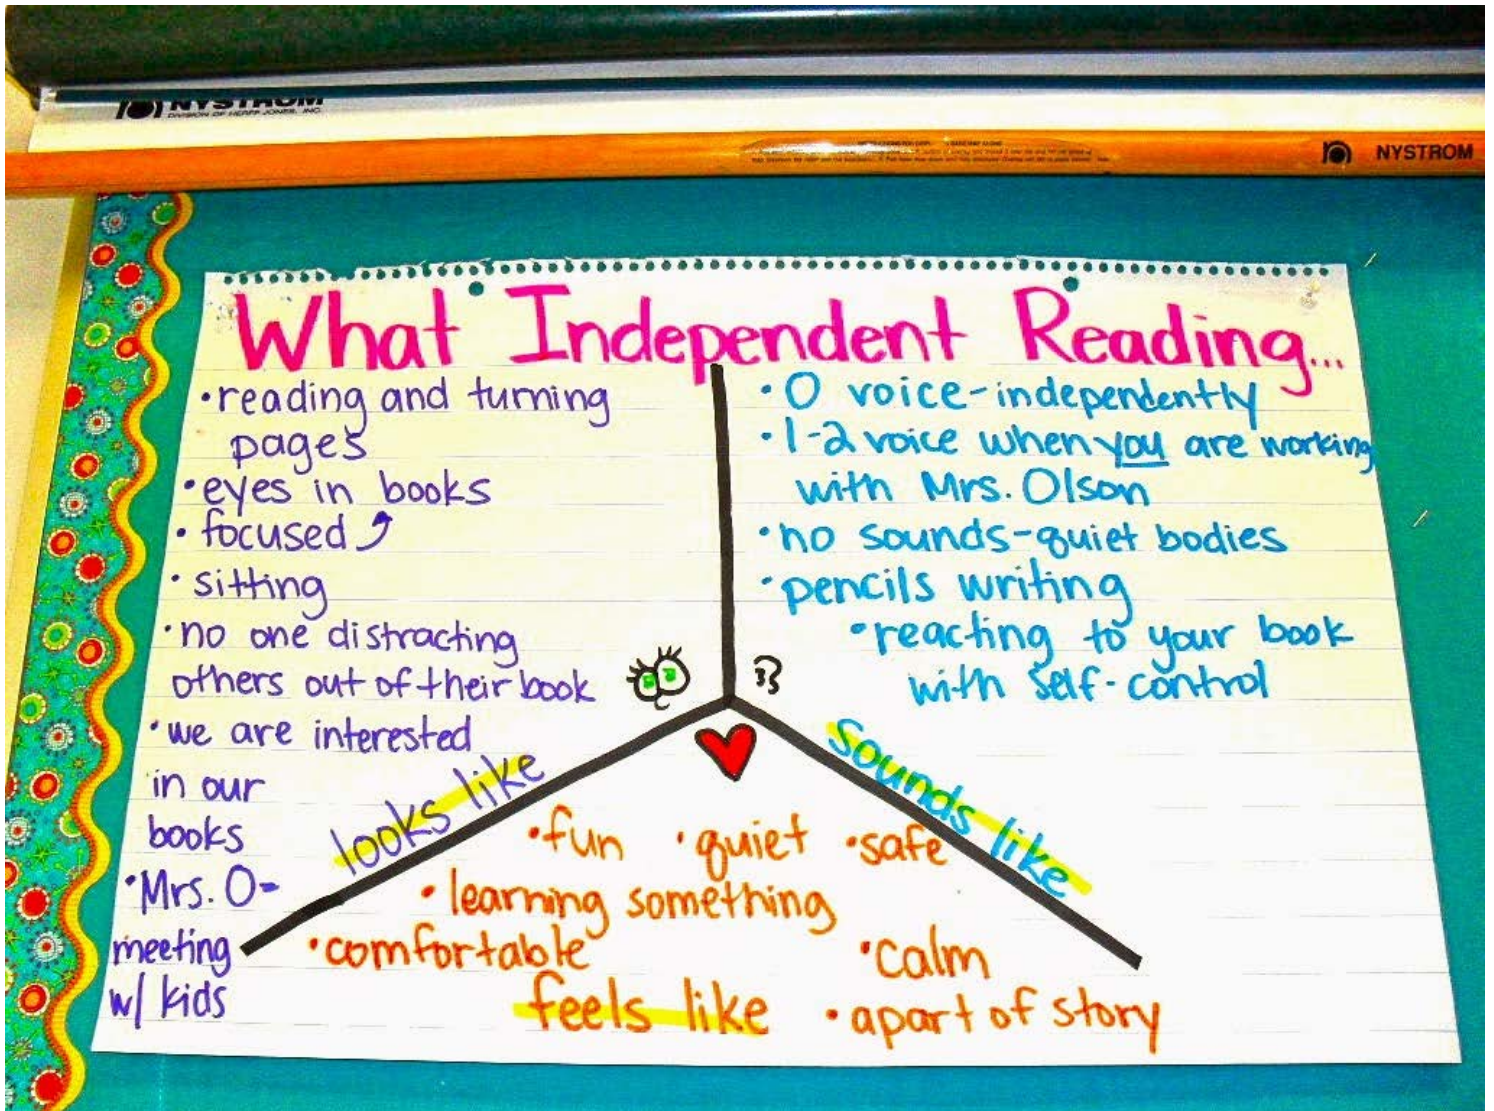 NYSTROM
DIVISION OF HERFF JONES, INC.
NYSTROM
What Independent Reading...
•reading and turning
pages
•eyes in books
•focused
•sitting
•no one distracting
others out of their book
•we are interested
in our
books
•Mrs. O-
meeting
w/ kids
looks like
•0 voice-independently
•1-2 voice when you are working
with Mrs. Olson
•no sounds-quiet bodies
•pencils writing
•reacting to your book
with self-control
sounds like
•fun •quiet •safe
•learning something
•comfortable •calm
feels like •apart of story